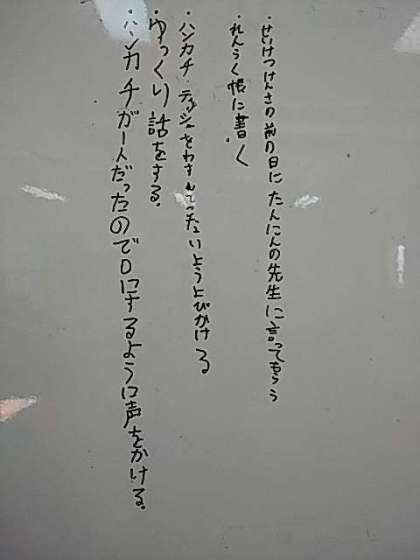 ・せいけつけんさの前の日にたんにんの先生に言ってもらう
・れんらく帳に書く
・ハンカチ・ティッシュをわすれ ないようよびかける
・ゆっくり話をする。
・ハンカチが一人だったので0にするように声をかける。